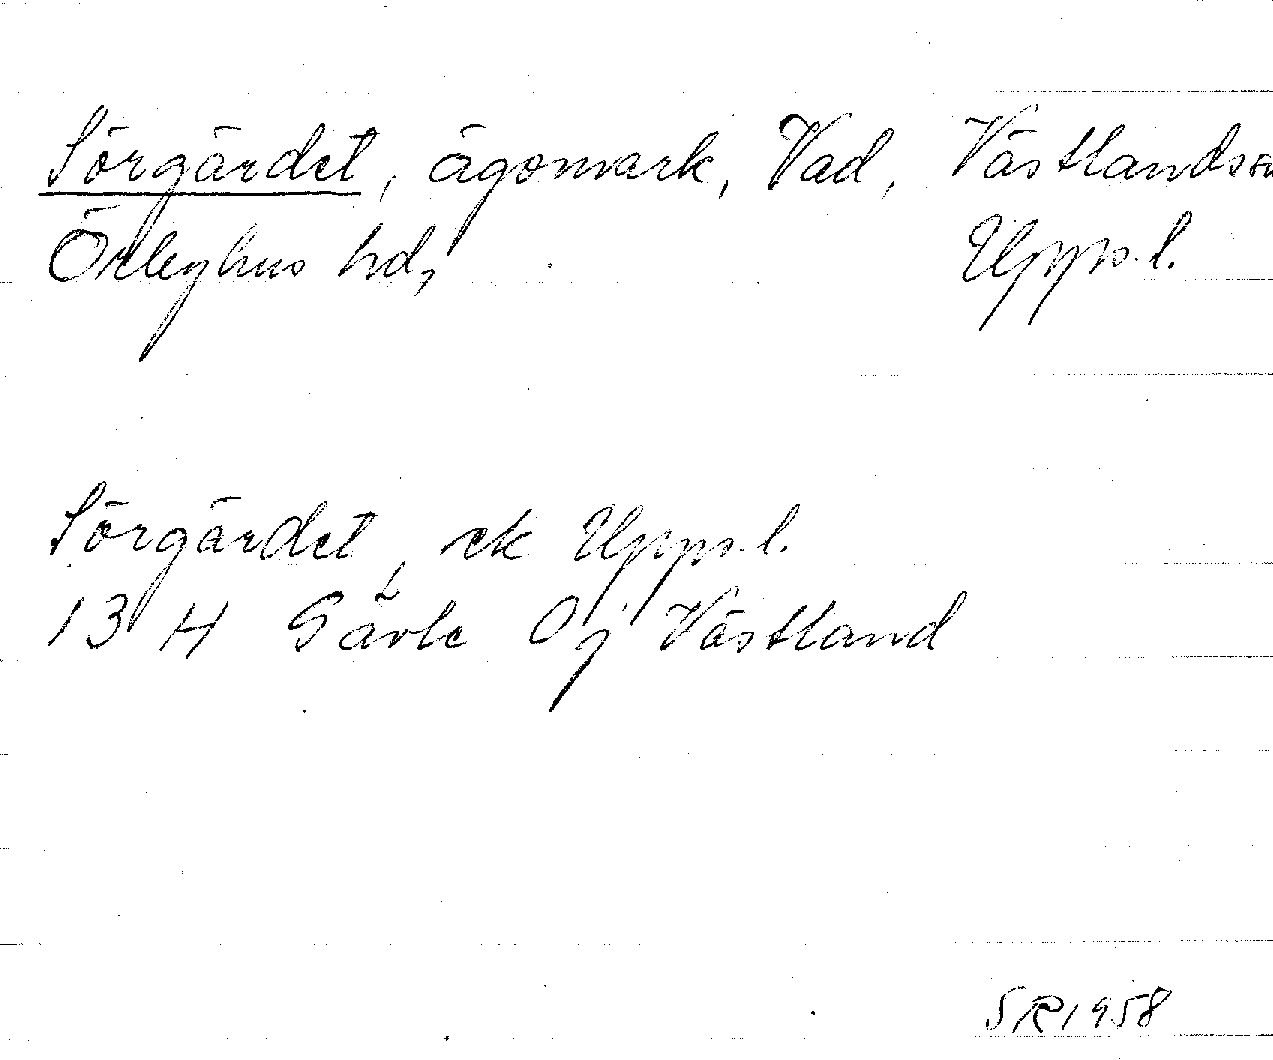 Sörgärdet, ägomark, Vad, Västlands sn
Örbyhus hd, Uppl.
Sörgärdet, ek Uppl.
13 H Gävle Oj Västland
SR 1958